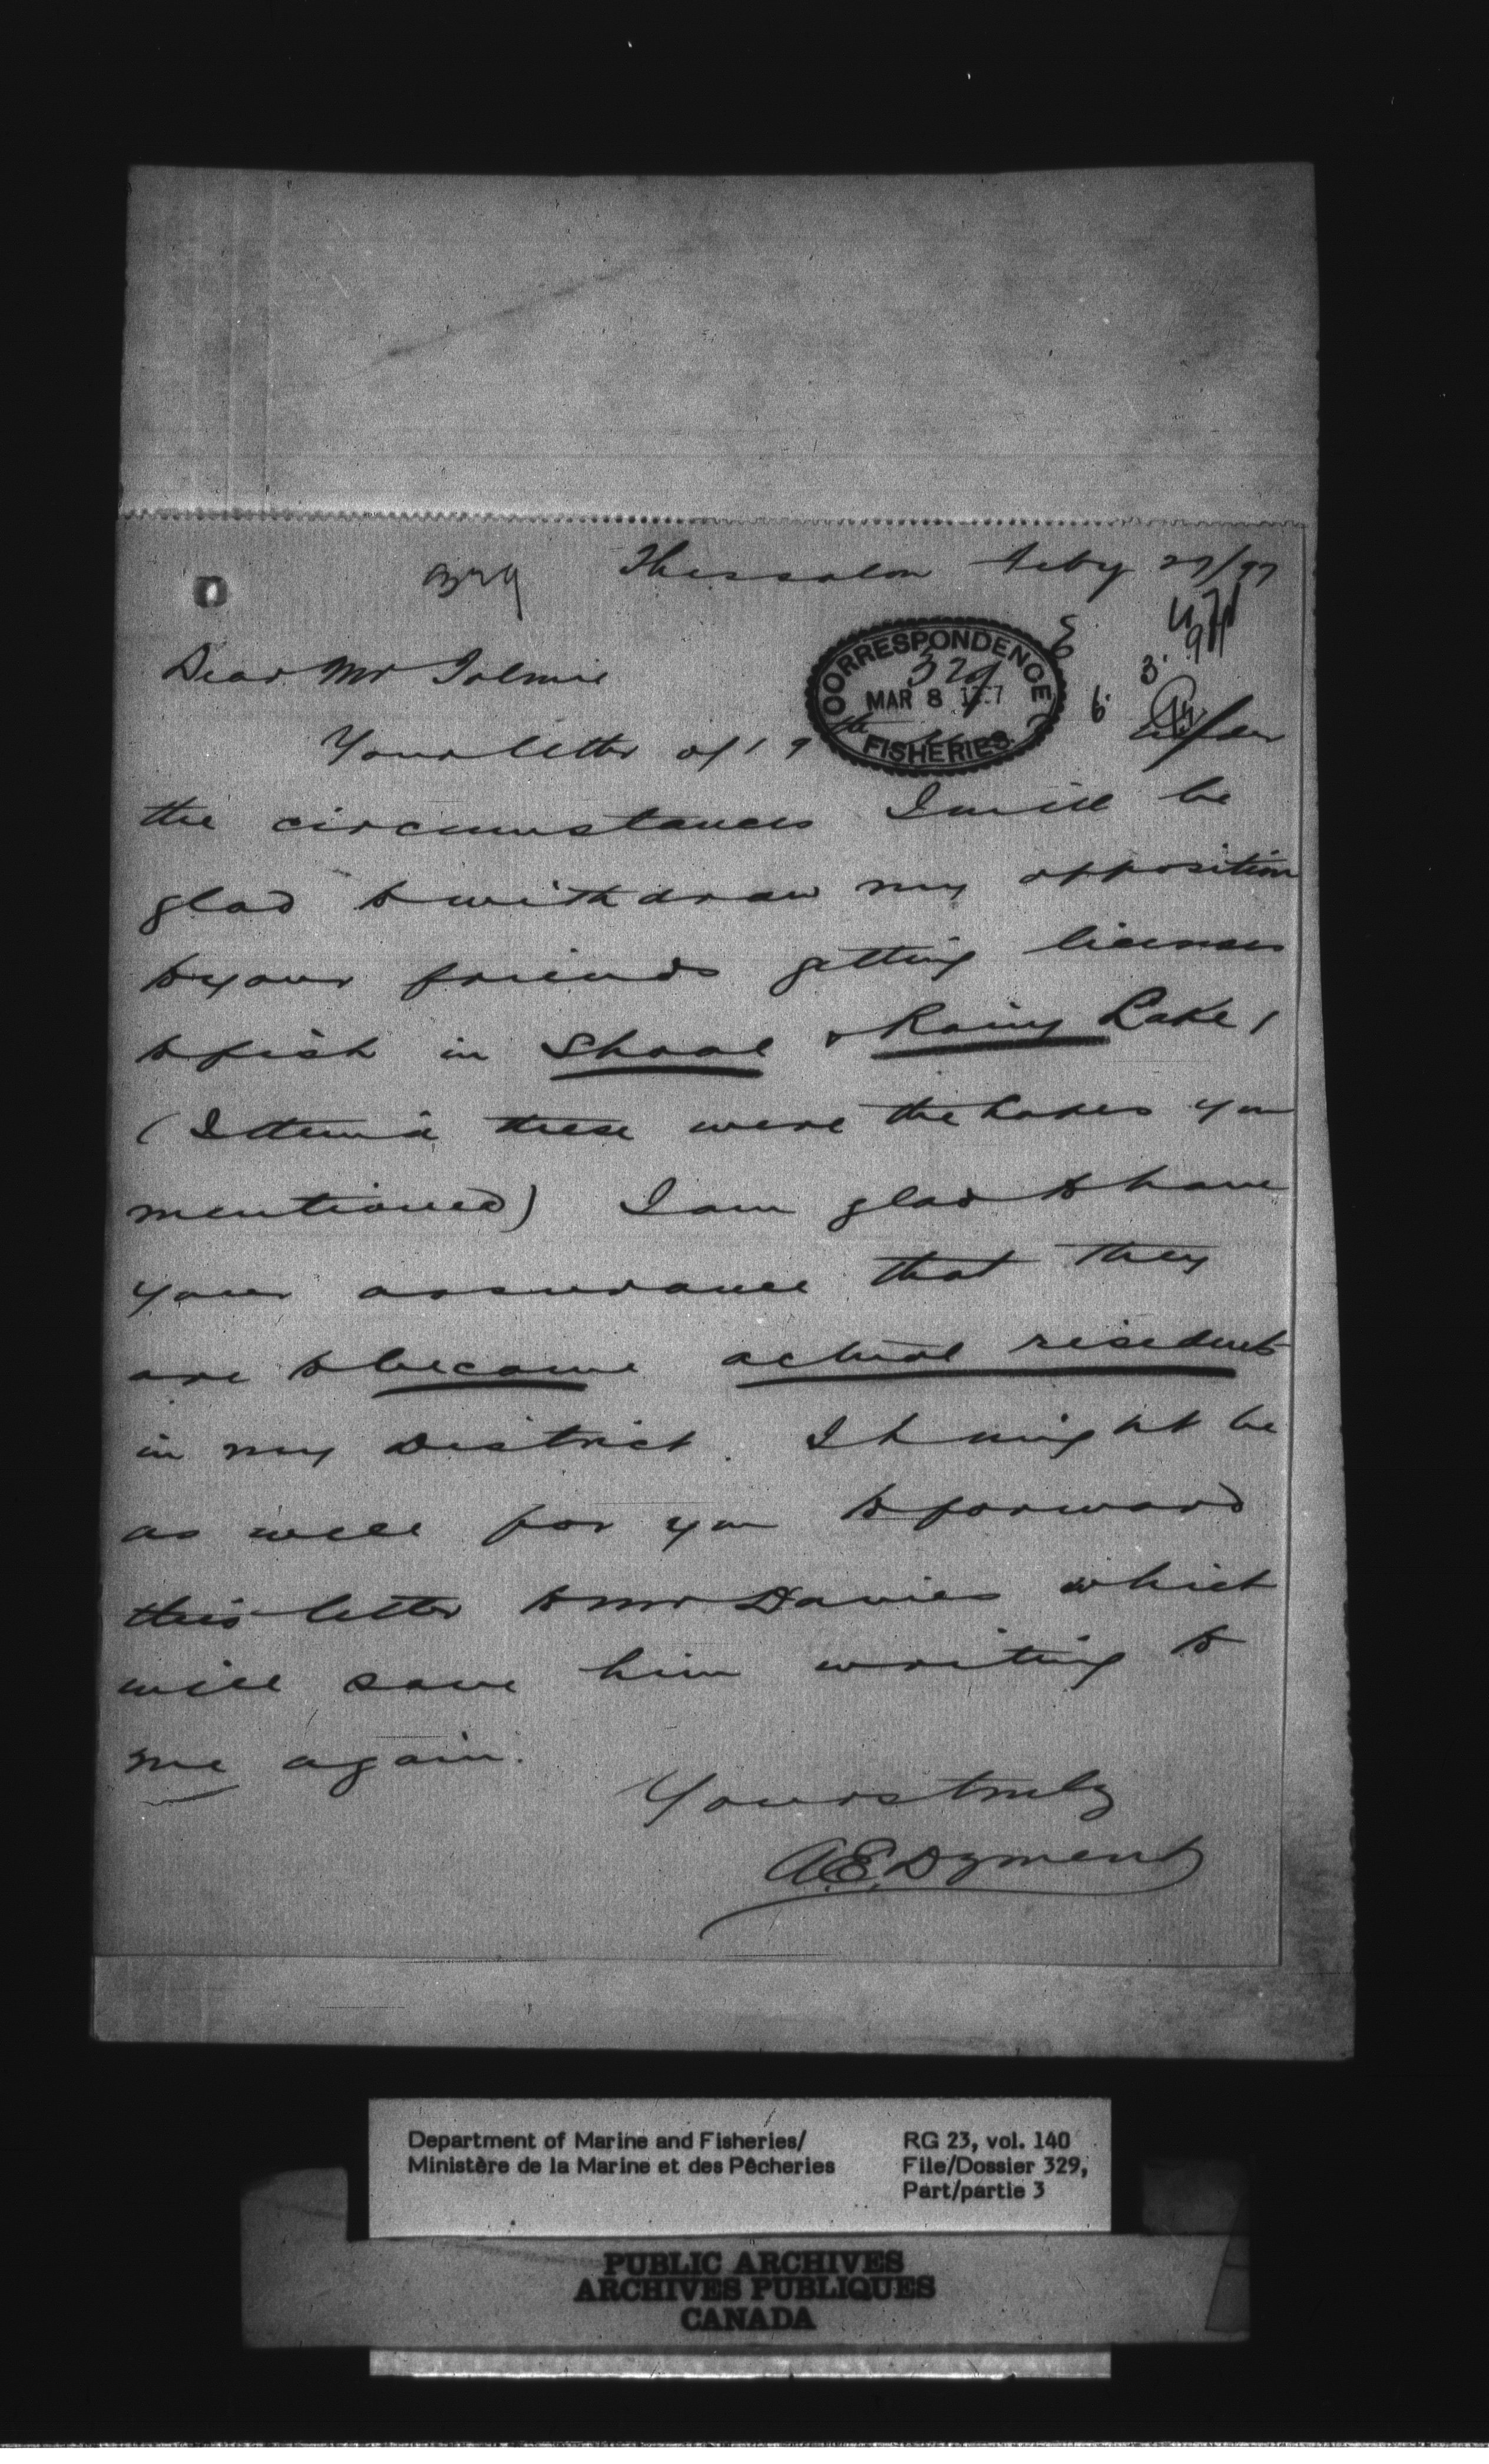 329
Thessalon Feby 27/97
Dear Mr Tolmie
CORRESPONDENCE
329
MAR 8
FISHERIES
Your letter of 19th
Under
the circumstances I will be
glad to withdraw my opposition
to your friends getting licenses
to fish in Shoal & Rainy Lakes
(I think these were the Lakes you
mentioned) I am glad to have
your assurance that they
are to become actual residents
in my District. It might be
as well for you to forward
this letter to Mr Davies which
will save him writing to
me again.
Yours truly
A.E. Dyment
Department of Marine and Fisheries/
Ministère de la Marine et des Pêcheries
RG 23, vol. 140
File/Dossier 329,
Part/partie 3
PUBLIC ARCHIVES
ARCHIVES PUBLIQUES
CANADA